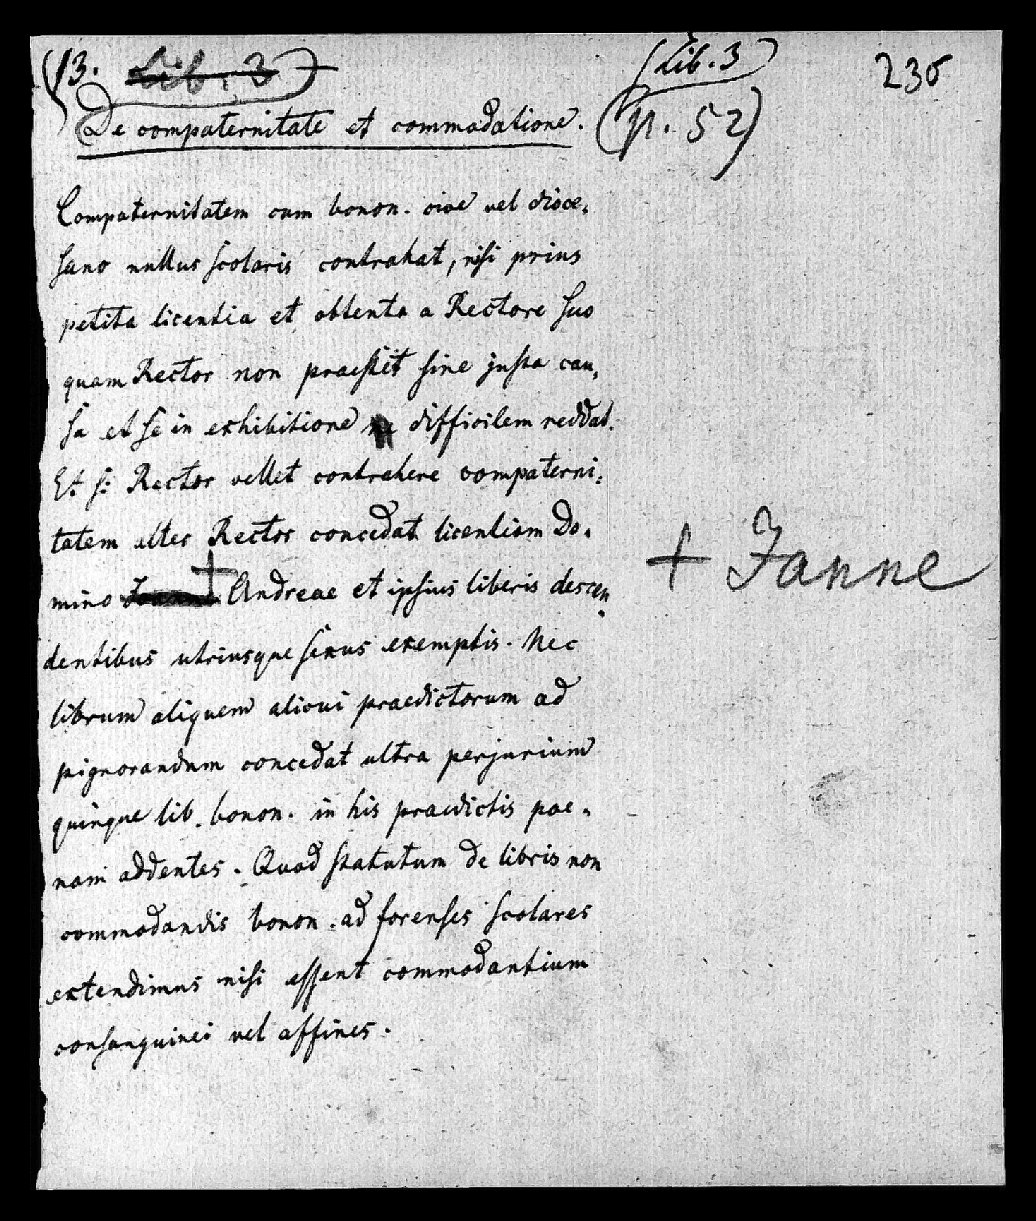 (13. Lib. 3) (Lib. 3) 236
De compaternitate et commodatione. (p. 52)
Compaternitatem cum bonon. cive vel dioce,
sano nullus scolaris contrahat, nisi prius
petita licentia et obtenta a Rectore suo
quam Rector non praestet sine justa cau,
sa et se in exhibitione difficilem reddat.
Et si Rector vellet contrahere compaterni,
tatem alter Rector concedat licentiam Do,
mino + Andreae et ipsius liberis descen,
+ Janne
dentibus utriusque sexus exemptis. Nec
librum aliquem alicui praedictorum ad
pignorandum concedat ultra perjurium
quinque lib. bonon. in his praedictis poe,
nam addentes. Quod statutum de libris non
commodandis bonon. ad forenses scolares
extendimus nisi essent commodantium
consanguinei vel affines.